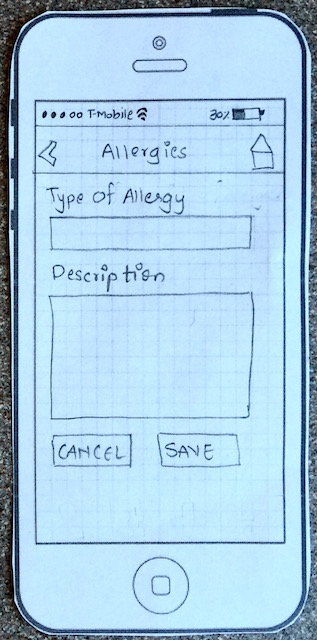 T-Mobile 30%
Allergies
Type of Allergy
Description
CANCEL SAVE